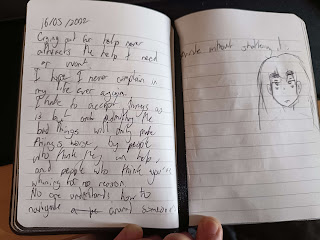 16/05/2022
Crying out for help never
attracts the help I need
or want.
I hope I never complain in
my life ever again.
I hate to accept things as
is but admitting the
bad things will only make
things worse, by people
who think I
and people who think you're
whining for no reason.
No one understands how to
navigate around someone
without